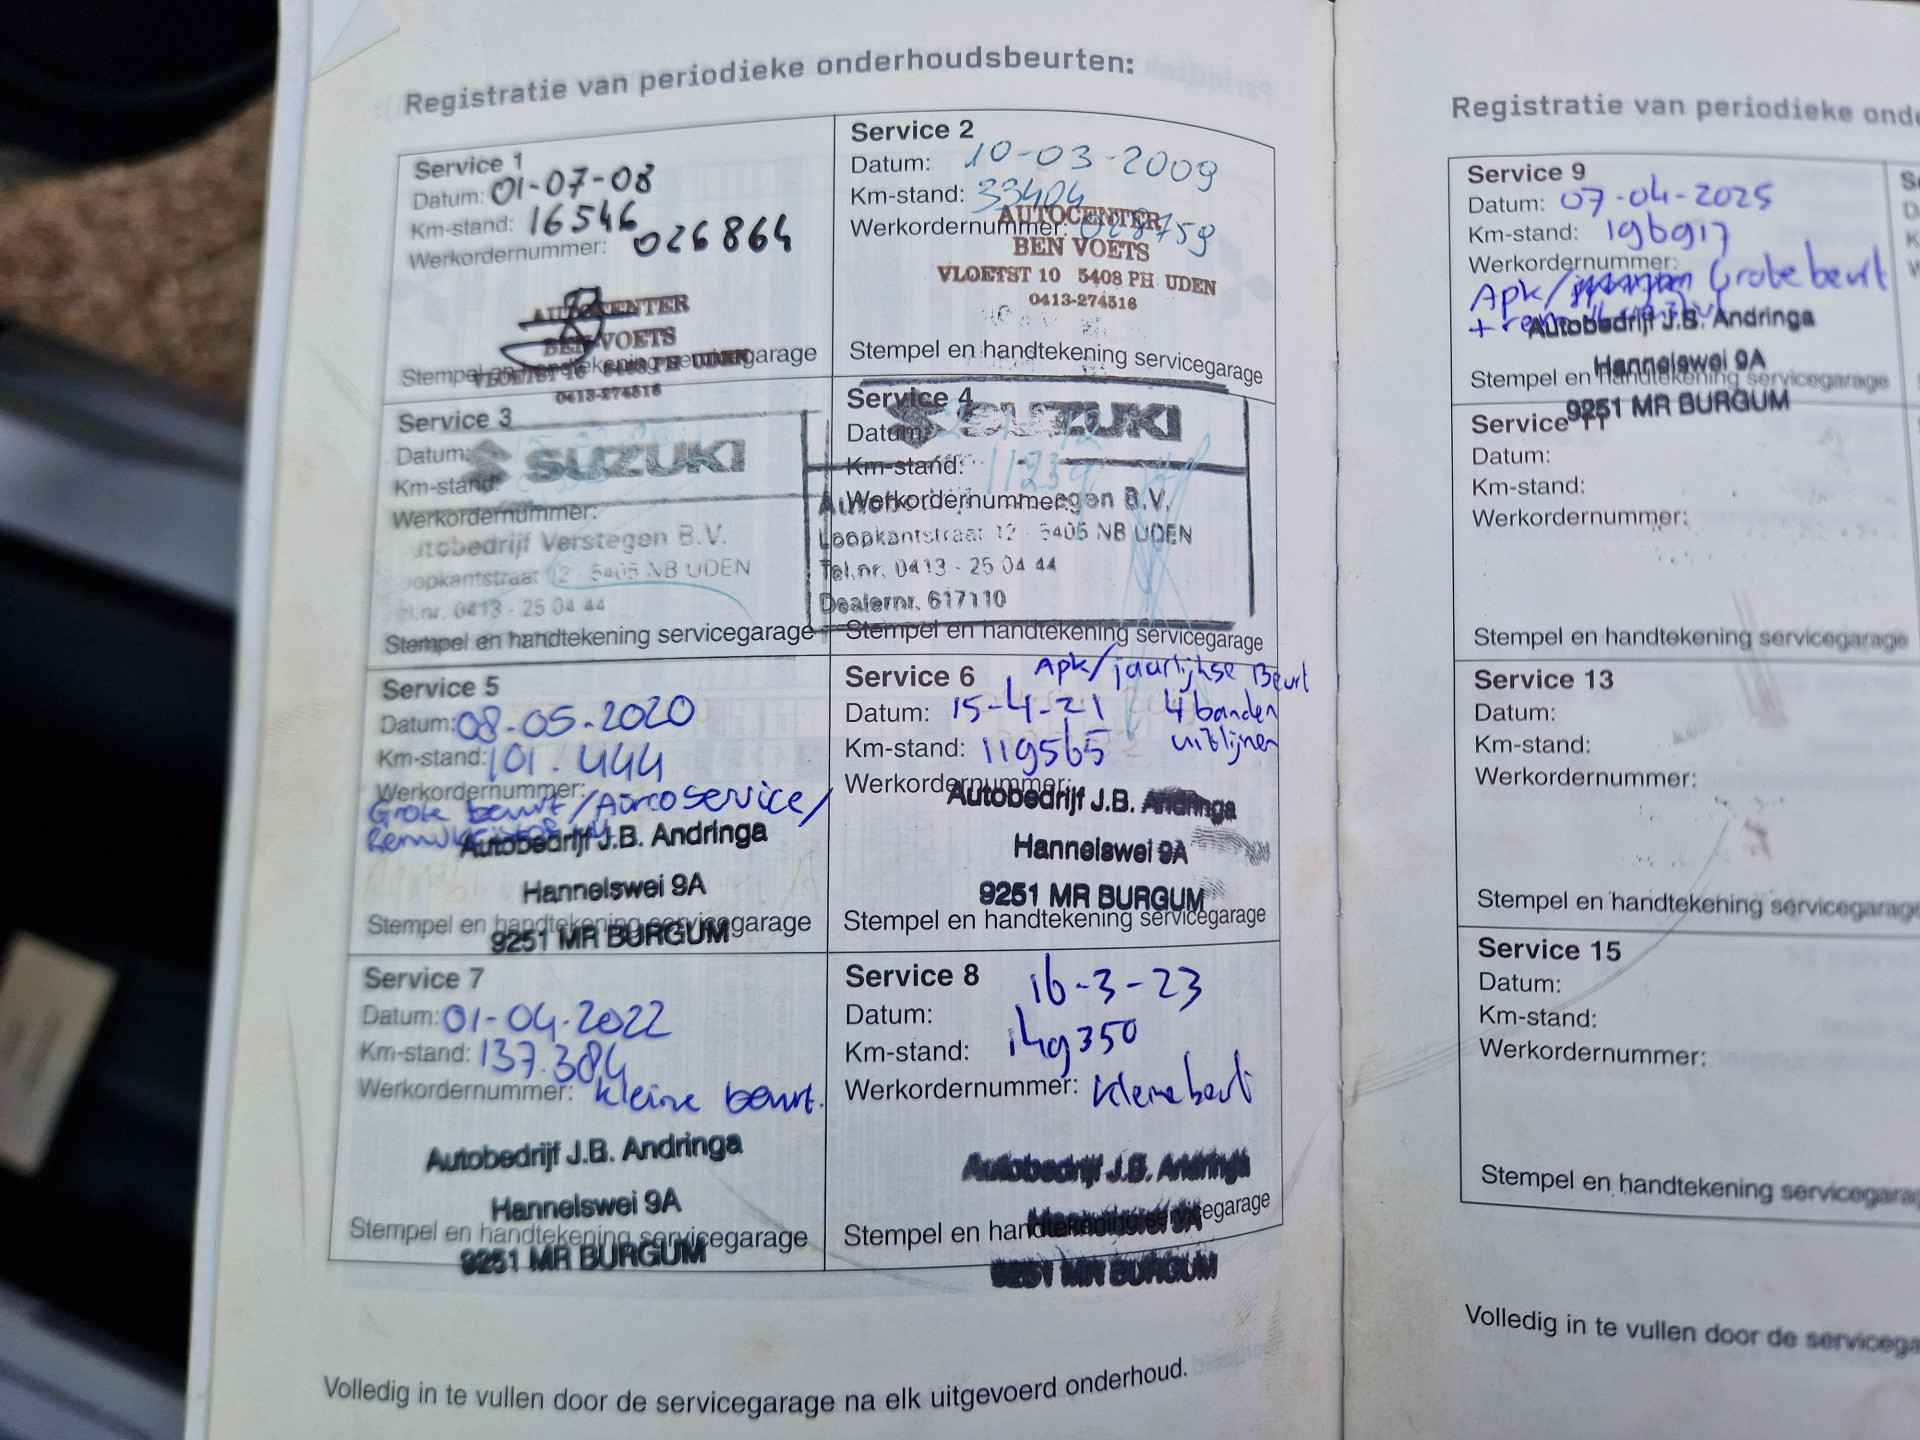 Registratie van periodieke onderhoudsbeurten:
Service 1
Datum: 01-07-08
Km-stand: 16546
Werkordernummer: 026864
AUTOCENTER
BEN VOETS
VLOETST 10 5408 PH UDEN
0413-274516
Stempel en handtekening servicegarage
Service 2
Datum: 10-03-2009
Km-stand: 33404
Werkordernummer: 028759
AUTOCENTER
BEN VOETS
VLOETST 10 5408 PH UDEN
0413-274516
Stempel en handtekening servicegarage
Service 3
Datum:
Km-stand:
Werkordernummer:
SUZUKI
Autobedrijf Verstegen B.V.
Loopkantstraat 12 - 5405 NB UDEN
Tel.nr. 0413 - 25 04 44
Stempel en handtekening servicegarage
Service 4
Datum:
Km-stand:
Werkordernummer:
SUZUKI
B.V.
Loopkantstraat 12 - 5405 NB UDEN
Tel.nr. 0413 - 25 04 44
Dealernr. 617110
Stempel en handtekening servicegarage
Service 5
Datum: 08-05-2020
Km-stand: 101.444
Werkordernummer:
Grote beurt/Aircoservice/
Autobedrijf J.B. Andringa
Hannelswei 9A
Stempel en handtekening servicegarage
9251 MR BURGUM
Service 6 Apk/jaarlijkse Beurt
Datum: 15-4-21 4 banden
Km-stand: 119565 uitlijnen
Werkordernummer:
Autobedrijf J.B. Andringa
Hannelswei 9A
9251 MR BURGUM
Stempel en handtekening servicegarage
Service 7
Datum: 01-04-2022
Km-stand: 137.384
Werkordernummer: kleine beurt.
Autobedrijf J.B. Andringa
Hannelswei 9A
Stempel en handtekening servicegarage
9251 MR BURGUM
Service 8
Datum: 16-3-23
Km-stand: 149350
Werkordernummer: kleine beurt
Autobedrijf J.B. Andringa
Hannelswei 9A
Stempel en handtekening servicegarage
9251 MR BURGUM
Volledig in te vullen door de servicegarage na elk uitgevoerd onderhoud.
Registratie van periodieke onde
Service 9
Datum: 07-04-2025
Km-stand: 196917
Werkordernummer:
Apk/ Grote beurt
+
Autobedrijf J.B. Andringa
Hannelswei 9A
Stempel en handtekening servicegarage
9251 MR BURGUM
Service 11
Datum:
Km-stand:
Werkordernummer:
Stempel en handtekening servicegarage
Service 13
Datum:
Km-stand:
Werkordernummer:
Stempel en handtekening servicegarage
Service 15
Datum:
Km-stand:
Werkordernummer:
Stempel en handtekening servicegara
Volledig in te vullen door de servicega